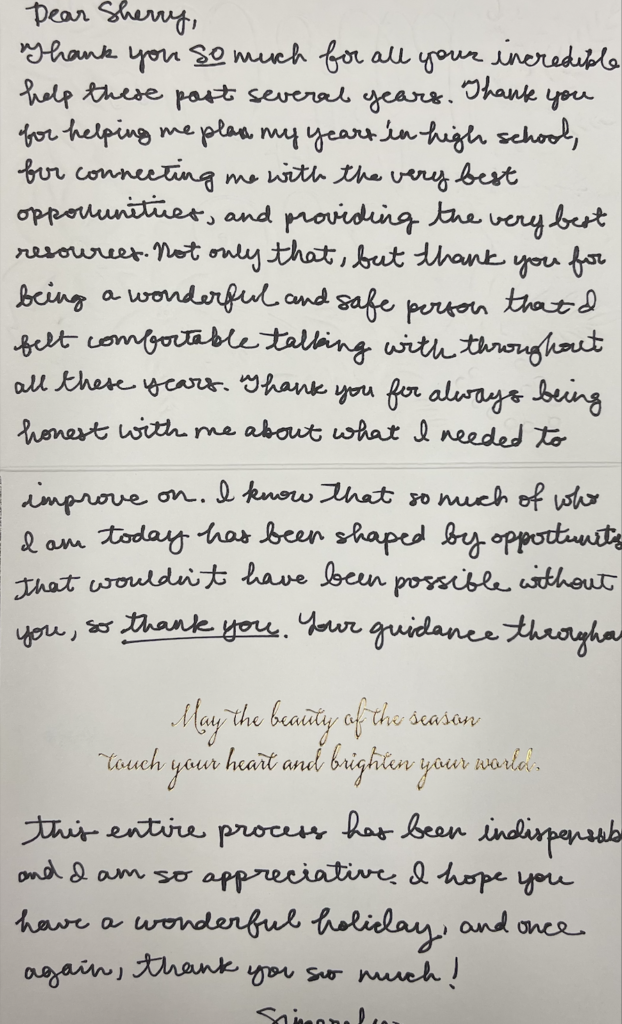 Dear Sherry,
Thank you SO much for all your incredible
help these past several years. Thank you
for helping me plan my years in high school,
for connecting me with the very best
opportunities, and providing the very best
resources. Not only that, but thank you for
being a wonderful and safe person that I
felt comfortable talking with throughout
all these years. Thank you for always being
honest with me about what I needed to
improve on. I know that so much of who
I am today has been shaped by opportunitis
that wouldn't have been possible without
you, so thank you. Your guidance througho
May the beauty of the season
touch your heart and brighten your world.
this entire process has been indispensab
and I am so appreciative. I hope you
have a wonderful holiday, and once
again, thank you so much!
Sincerely,